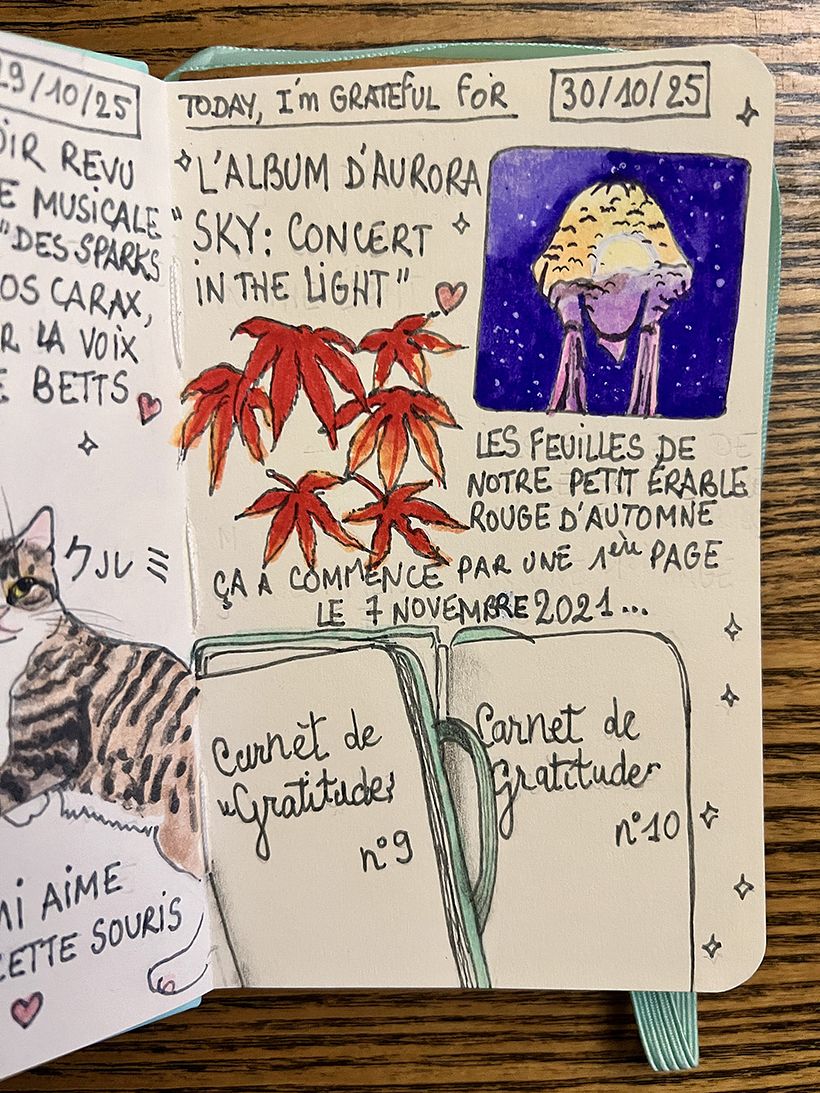 29/10/25
OIR REVU
E MUSICALE
"DES SPARKS
OS CARAX,
R LA VOIX
E BETTS
クルミ
MI AIME
CETTE SOURIS
TODAY, I'm GRATEFUL FOR
30/10/25
L'ALBUM D'AURORA
"SKY: CONCERT
IN THE LIGHT"
LES FEUILLES DE
NOTRE PETIT ÉRABLE
ROUGE D'AUTOMNE
ÇA A COMMENCÉ PAR UNE 1ère PAGE
LE 7 NOVEMBRE 2021...
Carnet de
"Gratitude"
n°9
Carnet de
Gratitude"
n°10